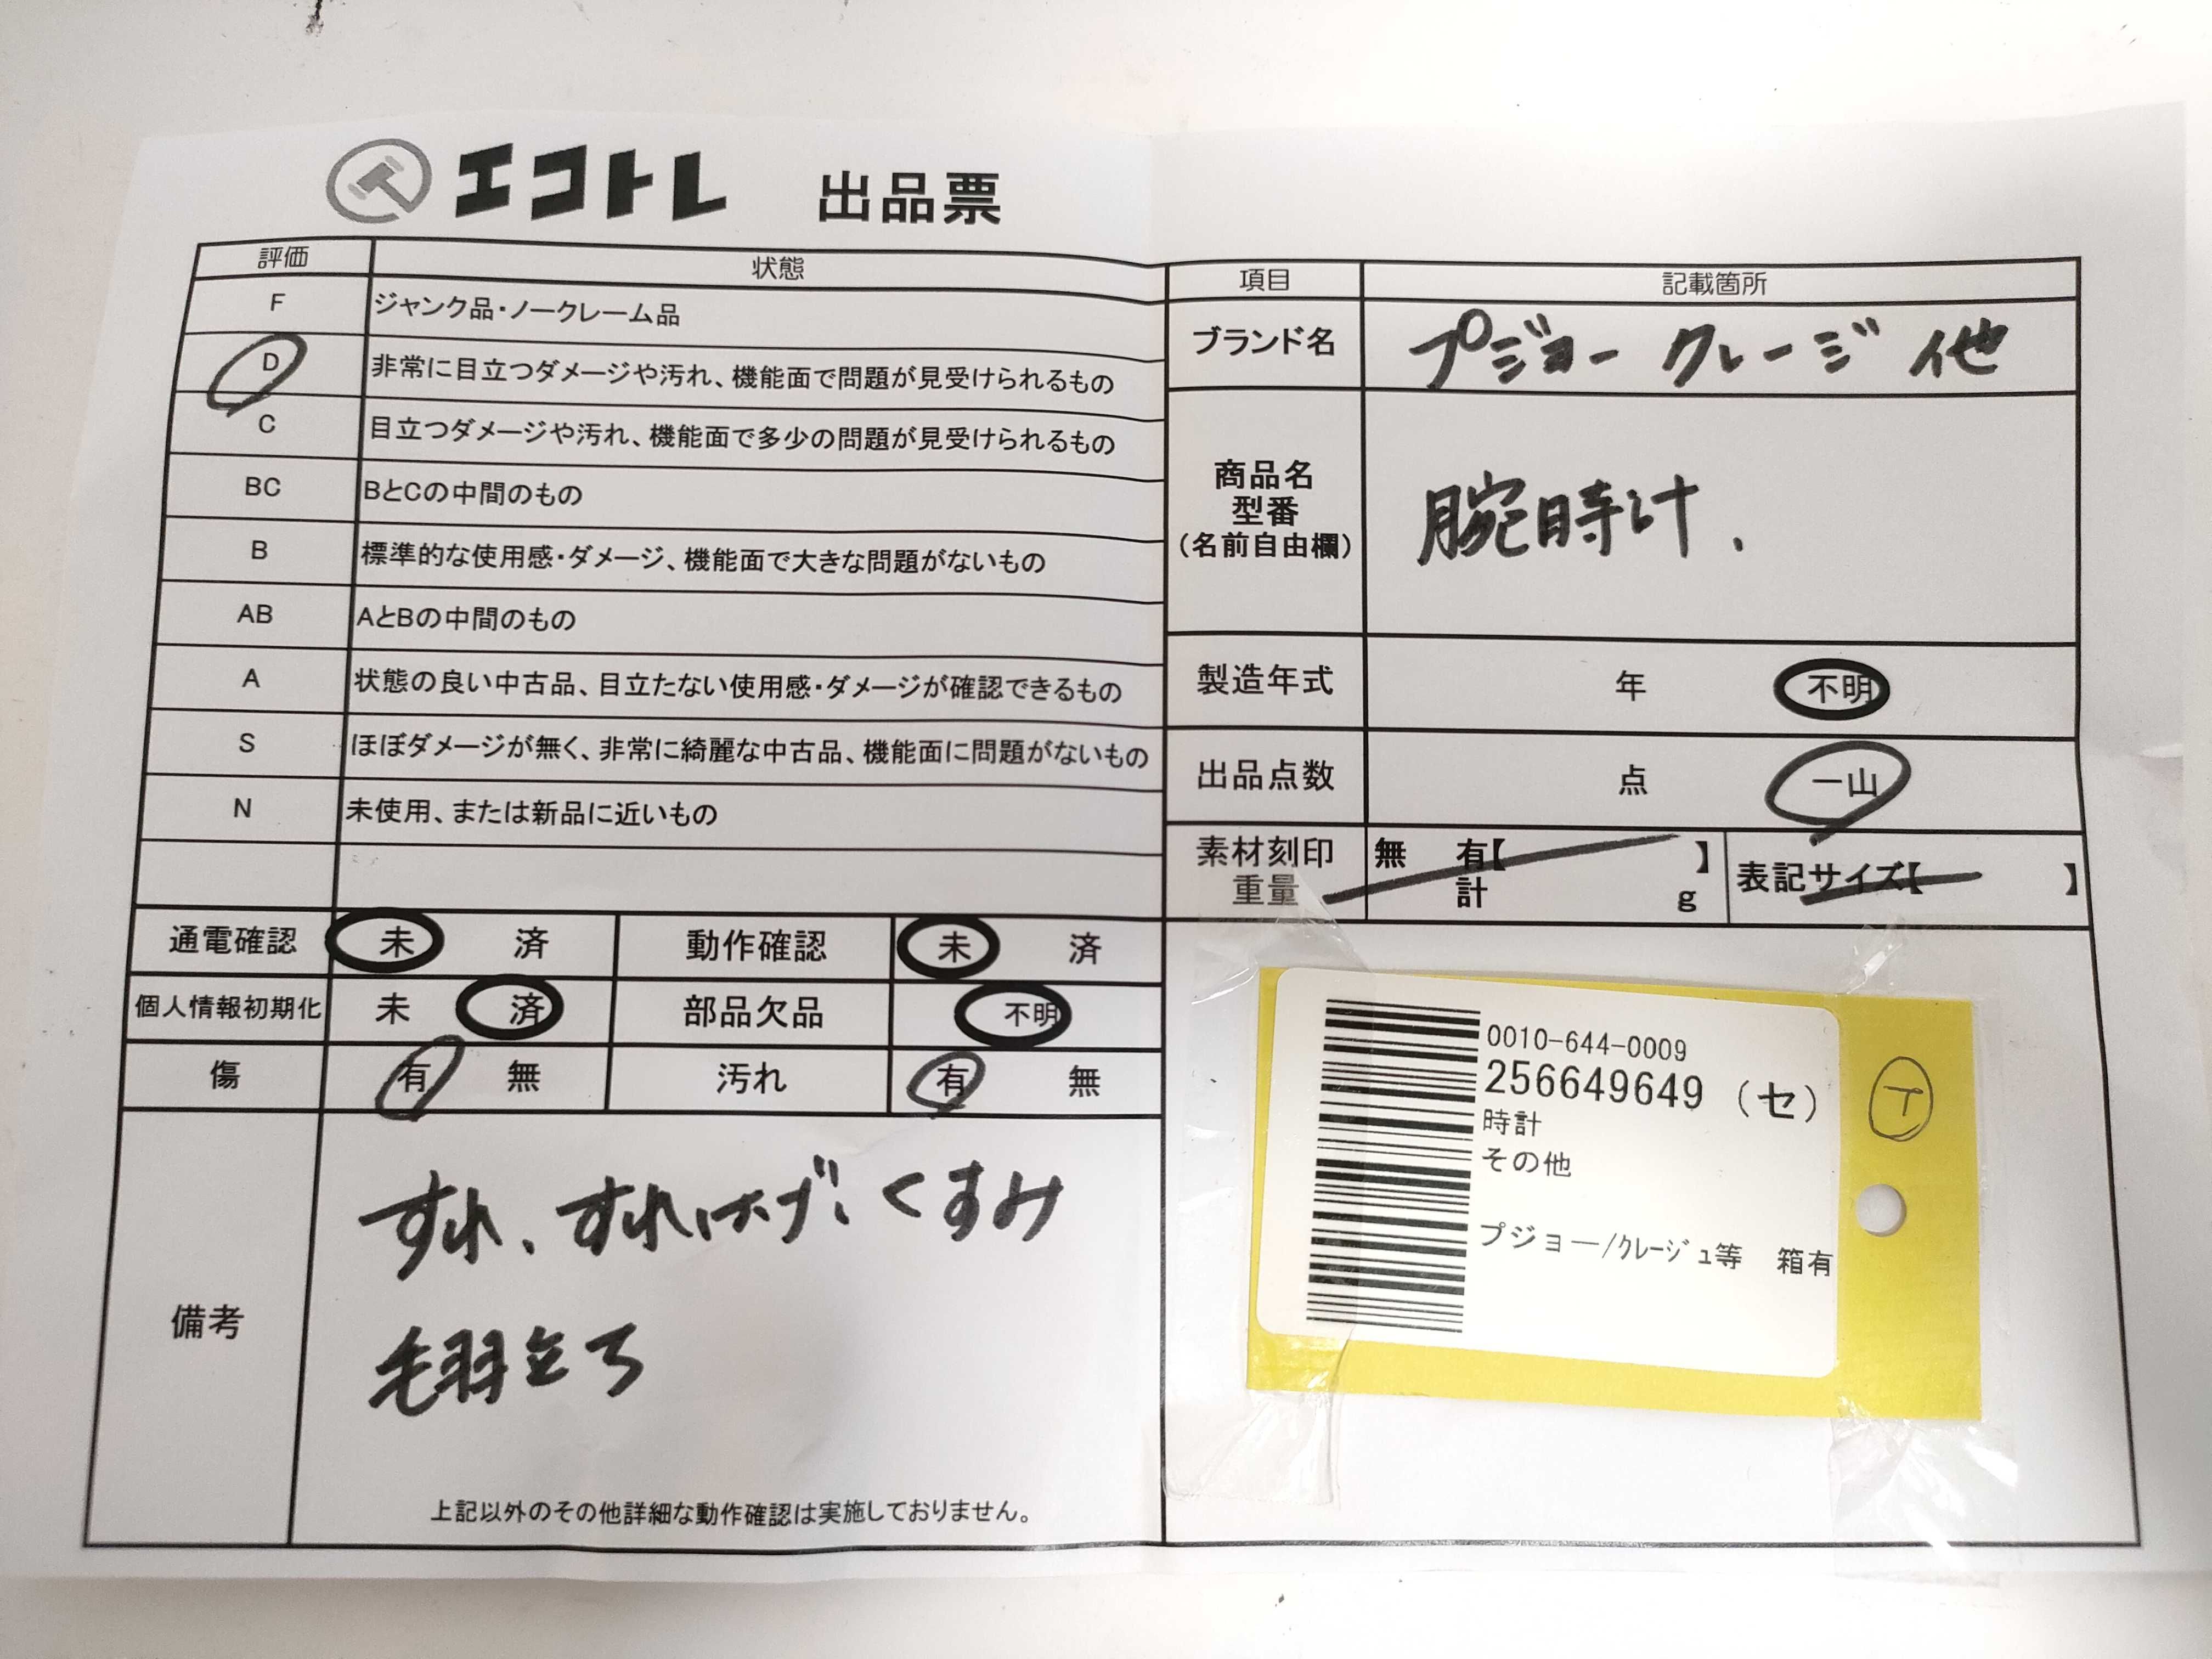 エコトレ 出品票
評価 状態
F ジャンク品・ノークレーム品
D 非常に目立つダメージや汚れ、機能面で問題が見受けられるもの
C 目立つダメージや汚れ、機能面で多少の問題が見受けられるもの
BC BとCの中間のもの
B 標準的な使用感・ダメージ、機能面で大きな問題がないもの
AB AとBの中間のもの
A 状態の良い中古品、目立たない使用感・ダメージが確認できるもの
S ほぼダメージが無く、非常に綺麗な中古品、機能面に問題がないもの
N 未使用、または新品に近いもの
通電確認 未 済 動作確認 未 済
個人情報初期化 未 済 部品欠品 不明
傷 有 無 汚れ 有 無
備考
すれ、すれはげ、くすみ
毛羽立ち
上記以外のその他詳細な動作確認は実施しておりません。
項目 記載箇所
ブランド名 プジョー クレージ 他
商品名
型番
(名前自由欄)
腕時計.
製造年式 年 不明
出品点数 点 一山
素材刻印 無 有【 】
重量 計 g
表記サイズ【 】
0010-644-0009
256649649 (セ)
時計
その他
プジョー/クレージュ等 箱有